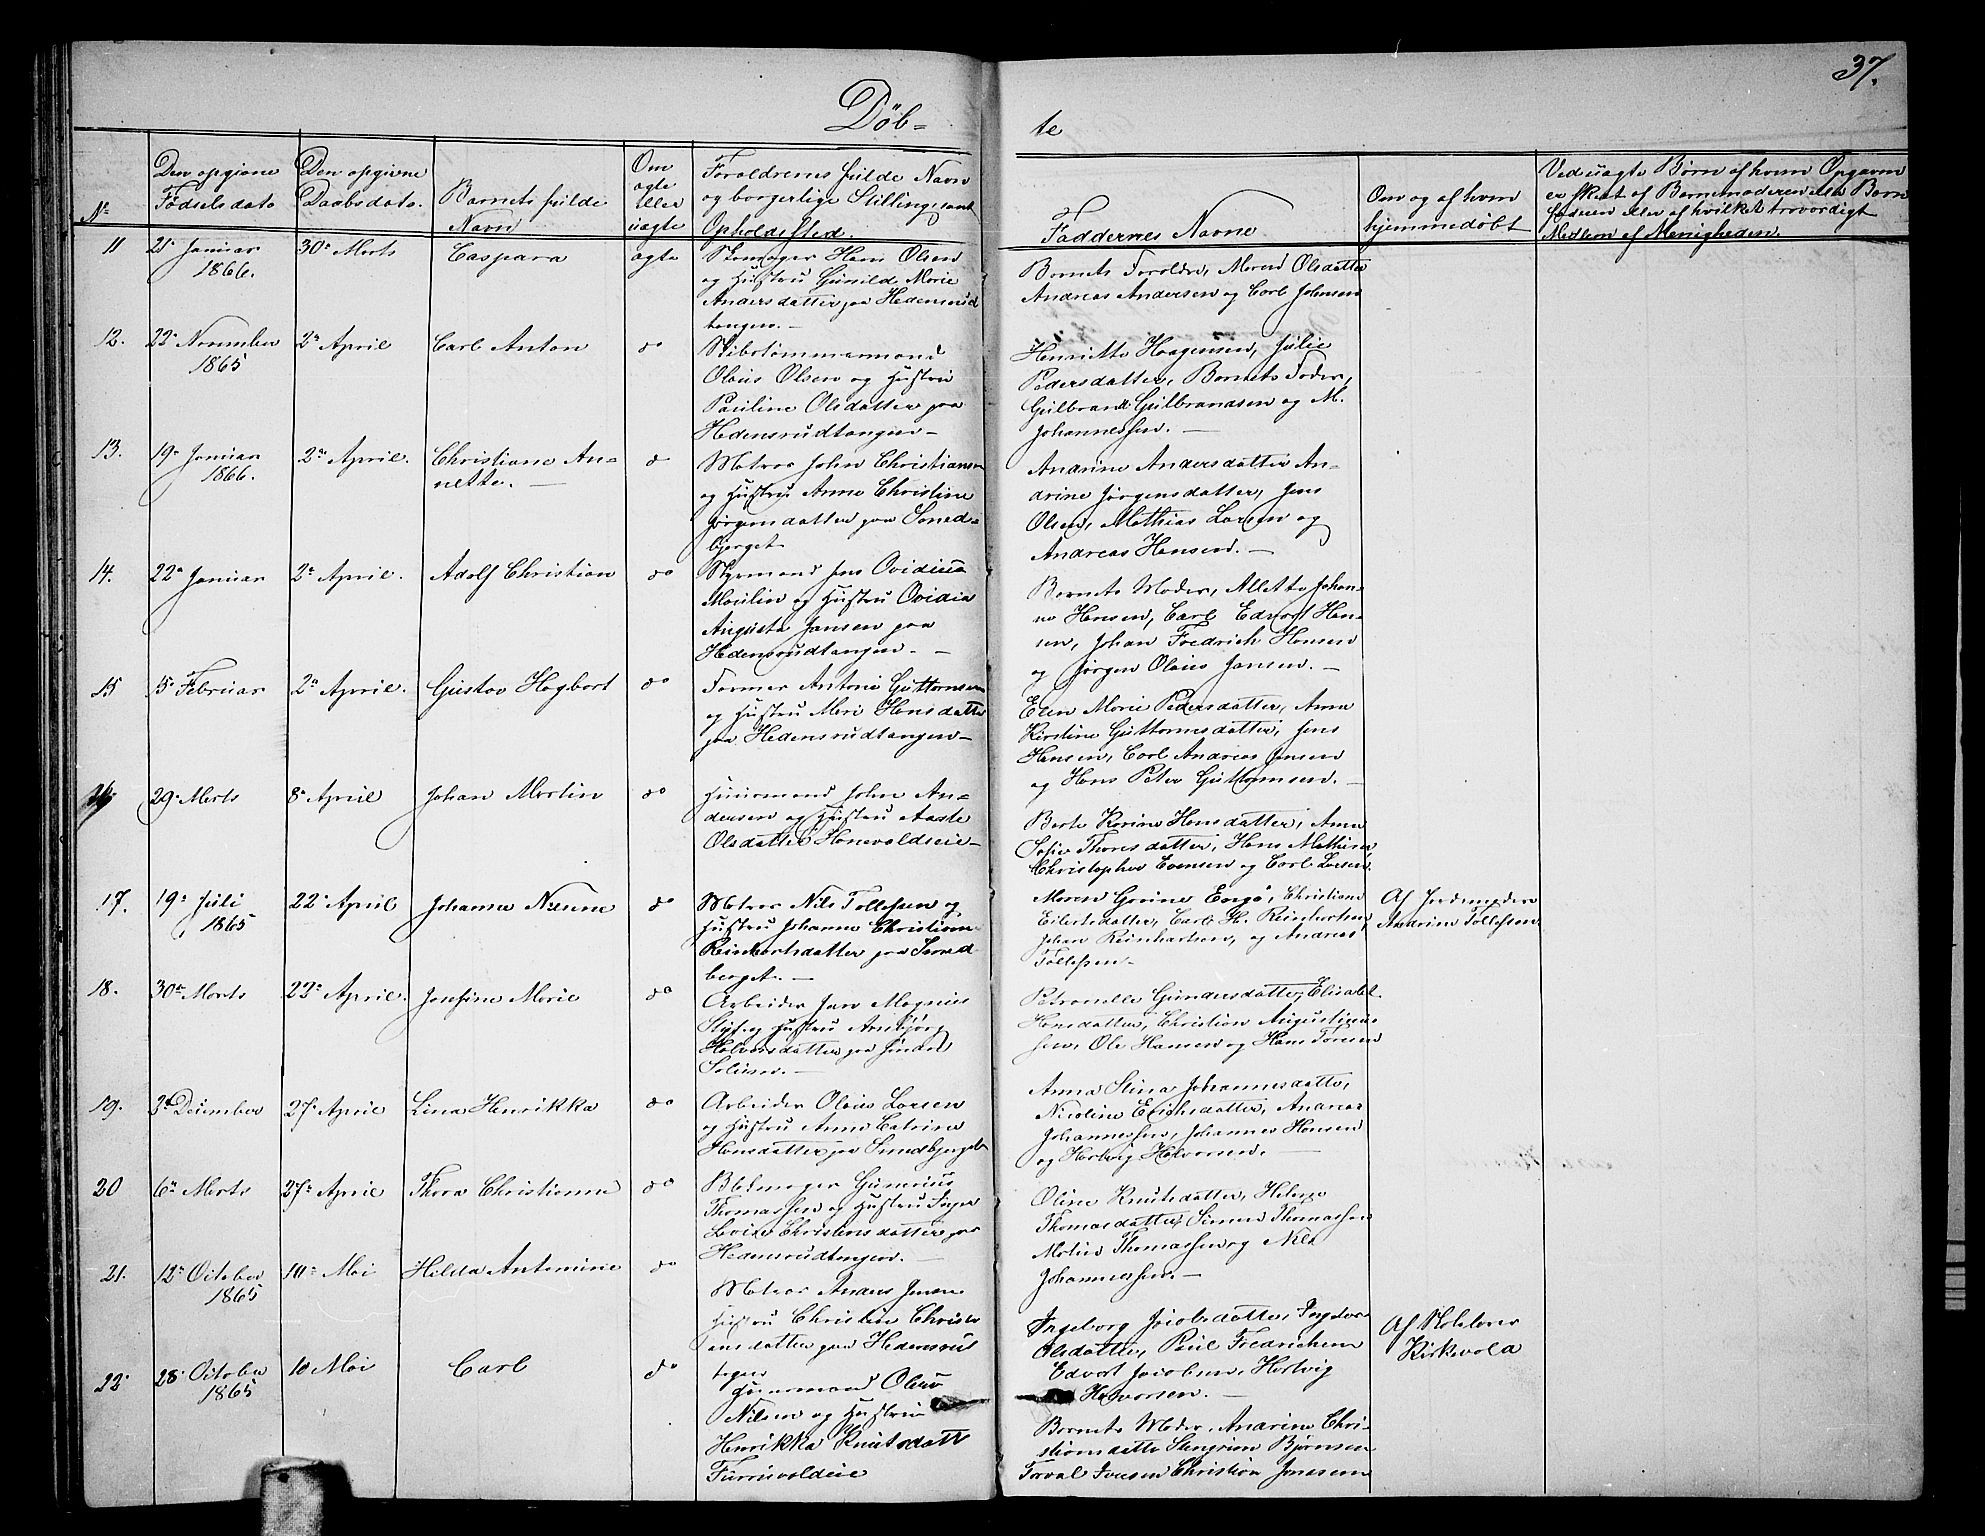 37.
Døb= te
No
Den opgivne Fødselsdato
Den opgivne Daabsdato.
Barnets fulde Navn
Om ægte eller uægte
Forældrenes fulde Navn og borgerlige Stilling samt Opholdssted.
Faddernes Navne
Om og af hvem hjemmedøbt
Ved uægte Børn af hvem Opgaven er skeet af Barnemoderen eller Barnefaderen eller af hvilket troværdigt Medlem af Menigheden.
11
21 Januar
1866.
30 Marts
Caspara
ægte
Skomager Hans Olsen
og Hustru Gunild Marie
Andersdatter paa Hedensrud
tangen. —
Barnets Forældre, Maren Olsdatter
Andreas Andersen og Carl Johnsen
12.
22 November
1865
2 April
Carl Anton
do
Skibstømmermand
Olaus Olsen og Hustru
Pauline Olsdatter paa
Hedensrudtangen —
Henriette Haagensen, Julie
Pedersdatter, Barnets Fader,
Gulbrand Gulbrandsen og M.
Johannessen. —
13.
19 Januar
1866.
2 April.
Christiane An=
nette. —
do
Matros John Christiansen
og Hustru Anne Christine
Jørgensdatter paa Sand=
bjerget
Andrine Andersdatter An=
drine Jørgensdatter, Jens
Olsen, Mathias Larsen og
Andreas Hansen. —
14.
22 Januar
2 April.
Adolf Christian
do
Styrmand Jens Ovidius
Moulin og Hustru Ovidia
Augusta Jansen paa
Hedensrudtangen. —
Barnets Moder, Alette Johan=
ne Hansen, Carl Edvart Han=
sen, Johan Fredrich Hansen
og Jørgen Olaus Jansen. —
15
15 Februar
2 April.
Gustav Hagbart
do
Farmer Antoni Guttormsen
og Hustru Mari Hansdatter
paa Hedensrudtangen —
Elen Marie Pedersdatter, Anne
Kirstine Guttormsdatter, Jens
Hansen, Carl Andreas Jansen
og Hans Peter Guttormsen. —
16
29 Marts
8 April
Johan Martin
do
Huusmand John An=
dersen og Hustru Aaste
Olsdatter Hanevoldseie —
Berte Karine Hansdatter, Anne
Sofie Thoresdatter, Hans Mathisen,
Christopher Evensen og Carl Larsen.
17.
19 Juli
1865
22 April
Johanne
do
Matros Nils Tollefsen og
Hustru Johanne Christiane
Reinhartsdatter paa Sand
berget. —
Maren Gurine Engø, Christiane
Eilertsdatter, Carl H. Reinhartsen,
Johan Reinhartsen, og Andreas
Tollefsen —
Af Jordemoder
Andrine Tollefsen
18.
30 Marts
22 April.
Josefine Marie
do
Arbeider Jan Magnus
og Hustru Anbjørg
Halvorsdatter paa
Solum. —
Petronelle Gundersdatter, Elisabet
Hansdatter, Christian Augustinus
sen, Ole Hansen og Hans Toresen
19.
3 December
27 April
Lina Henrikka
do
Arbeider Olaus Larsen
og Hustru Anne Catrine
Hansdatter paa Sandbjerget
Anna Stina Johannesdatter,
Nicoline Erichsdatter, Andreas
Johannessen, Johannes Hansen
og Hartvig Halvorsen. —
20
6 Marts
27 April
Thora Christianne
do
Blokmager Gunerius
Thomassen og Hustru Inger
Lovise Christensdatter paa
Hedensrudtangen. —
Oline Knutsdatter, Helene
Thomasdatter, Simen Thomassen
Matius Thomassen og Nils
Johannessen. —
21.
12 October
1865
10 Mai
Hilda Antonnie
do
Matros Anders Jensen
Hustru Christine Christi
ansdatter paa Hedensrud
tangen
Ingeborg Jacobsdatter, Ingeborg
Olsdatter, Paul Fredrichsen
Edvart Jacobsen, Hartvig
Halvorsen. —
Af Kirkevold
22
28 October
1865
10 Mai
Carl
do
Huusmand Olaus
Nilsen og Hustru
Henrikka Knutsdatt
Furuvoldeie
Barnets Moder, Andrine Chri=
stiansdatter Bjørnsen
Torval Iversen Christian Jonassen